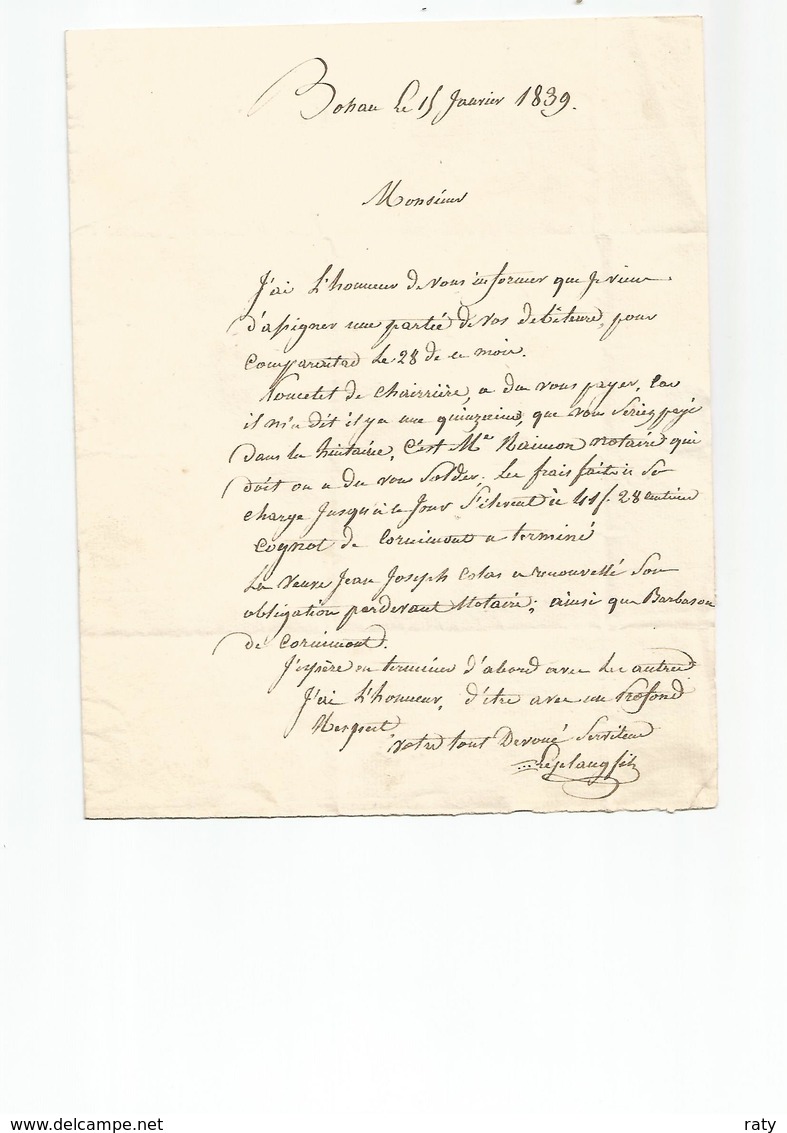 Bohan le 15 Janvier 1839.
Monsieur
J'ai l'honneur de vous informer que je viens
d'assigner une partie de vos debiteurs, pour
le 28 de ce mois.
de Chairrière, a du vous payer, car
il m'a dit il y a une quinzaine, que vous seriez payé
dans la huitaine, c'est Me notaire qui
doit ou a du vous solder; les frais faits à sa
charge jusqu'à ce jour s'élevent à 41 f. 28 centimes
Cognot de Cornimont a terminé
La veuve Jean Joseph Colas a renouvellé son
obligation pardevant Notaire; ainsi que Barbason
de Cornimont.
J'espère en terminer d'abord avec les autres
J'ai l'honneur, d'être avec un Profond
Respect
votre tout Devoué Serviteur
fils
www.delcampe.net
raty